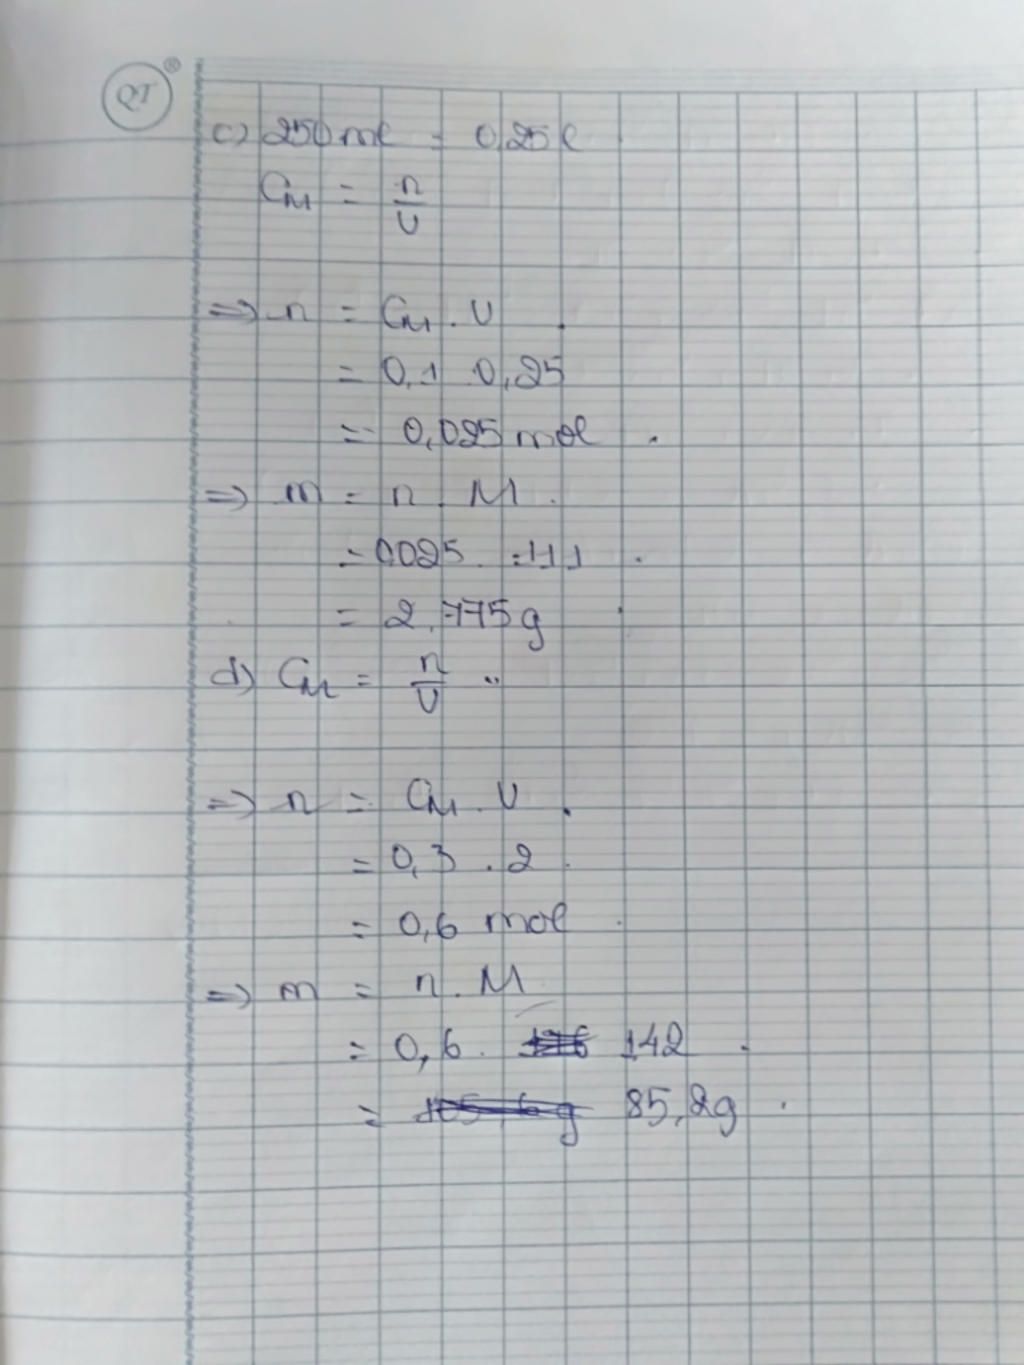 QT ®
c) 250 ml = 0,25 l
CM = n/V
=> n = CM . V
= 0,1 . 0,25
= 0,025 mol
=> m = n . M
= 0,025 . 111
= 2,775g
d) CM = n/V
=> n = CM . V
= 0,3 . 2
= 0,6 mol
=> m = n . M
= 0,6 . 142
= 85,2g